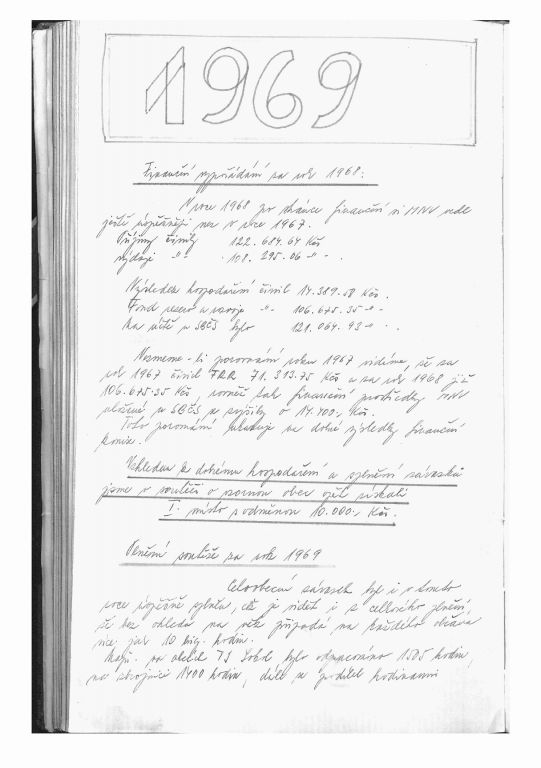 1969
Finanční vypořádání za rok 1968:
V roce 1968 po stránce finanční si MNV vedl
ještě úspěšněji než v roce 1967.
Příjmy činily 122.684.64 Kčs
výdaje -"- 108.295.06 -"- .
Výsledek hospodaření činil 14.389.58 Kčs.
Fond rezerv a rozvoje -"- 106.675.35 -"-
Na účtě u SBČS bylo 121.064.93 -"- .
Vezmeme-li porovnání roku 1967 vidíme, že za
rok 1967 činil FRR 71.313.75 Kčs a za rok 1968 již
106.675.35 Kčs, rovněž tak finanční prostředky MNV
uložené u SBČS se zvýšily o 14.400.- Kčs.
Toto porovnání ukazuje na dobré výsledky finanční
komise.
Vzhledem k dobrému hospodaření a splnění závazků
jsme v soutěži o vzornou obec opět získali
I. místo s odměnou 10.000.- Kčs.
Plnění soutěže za rok 1969
Celoobecní závazek byl i v tomto
roce úspěšně splněn, což je vidět i z celkového plnění,
že bez ohledu na věk připadá na každého občana
více jak 10 brig. hodin.
Např. na hřišti TJ Sokol bylo odpracováno 1505 hodin,
na zbrojnici 1400 hodin, dále se podílel hodinami